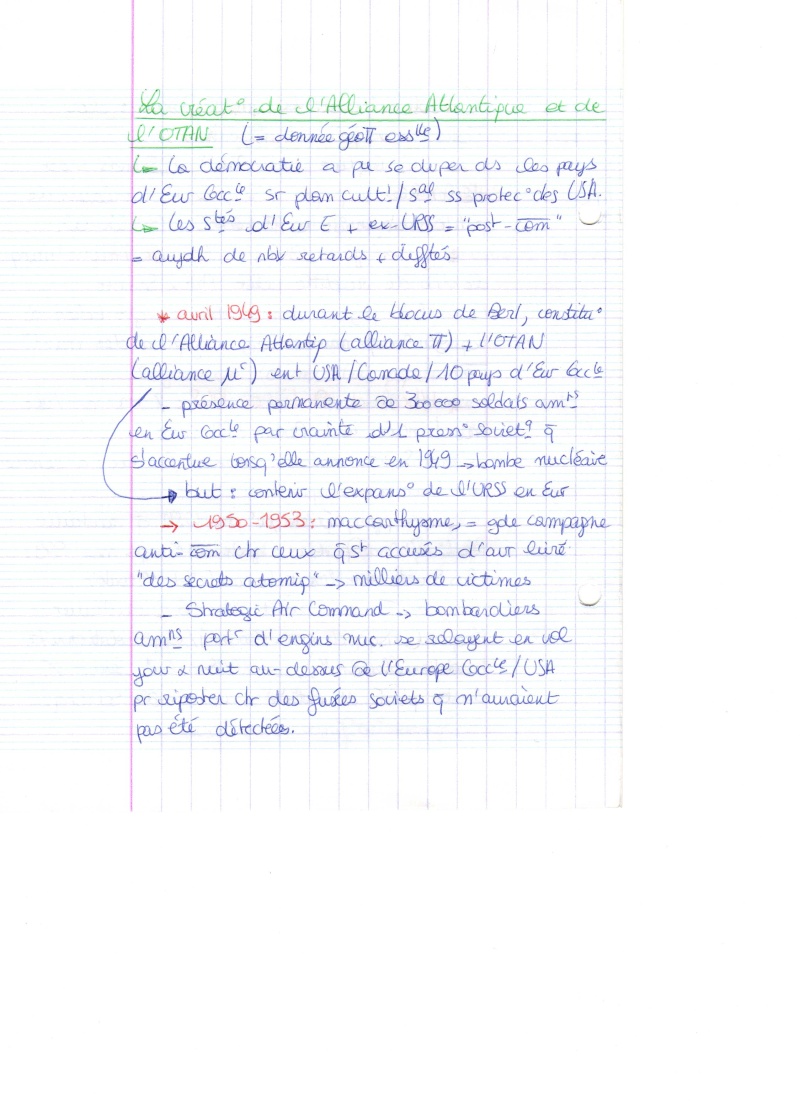 La créat° de l'Alliance Atlantique et de
l'OTAN (= donnée géoπ ess^lle)
↳ la démocratie a pu se dvper ds les pays
d'Eur Occ^le sr plan cult^l / s^al ss protec° des USA.
↳ les s^tés d'Eur E + ex-URSS = "post-com"
= aujdh de nbx retards + difftés
* avril 1949 : durant le blocus de Berl, constitu°
de l'Alliance Atlantiq (alliance π) + l'OTAN
(alliance μ^r) ent USA / Canada / 10 pays d'Eur Occ^le
- présence permanente de 300 000 soldats am^ns
en Eur Occ^le par crainte d'1 press° soviet^q q̄
s'accentue lorsq'elle annonce en 1949 → bombe nucléaire
→ but : contenir l'expans° de l'URSS en Eur
→ 1950-1953 : maccarthysme, = gde campagne
anti-com ctr ceux q̄ s^t accusés d'avr livré
"des secrets atomiq" → milliers de victimes
- Strategic Air Command → bombardiers
am^ns port^r d'engins nuc. se relayent en vol
jour & nuit au-dessus de l'Europe Occ^le / USA
pr riposter ctr des fusées soviets q̄ n'auraient
pas été détectées.